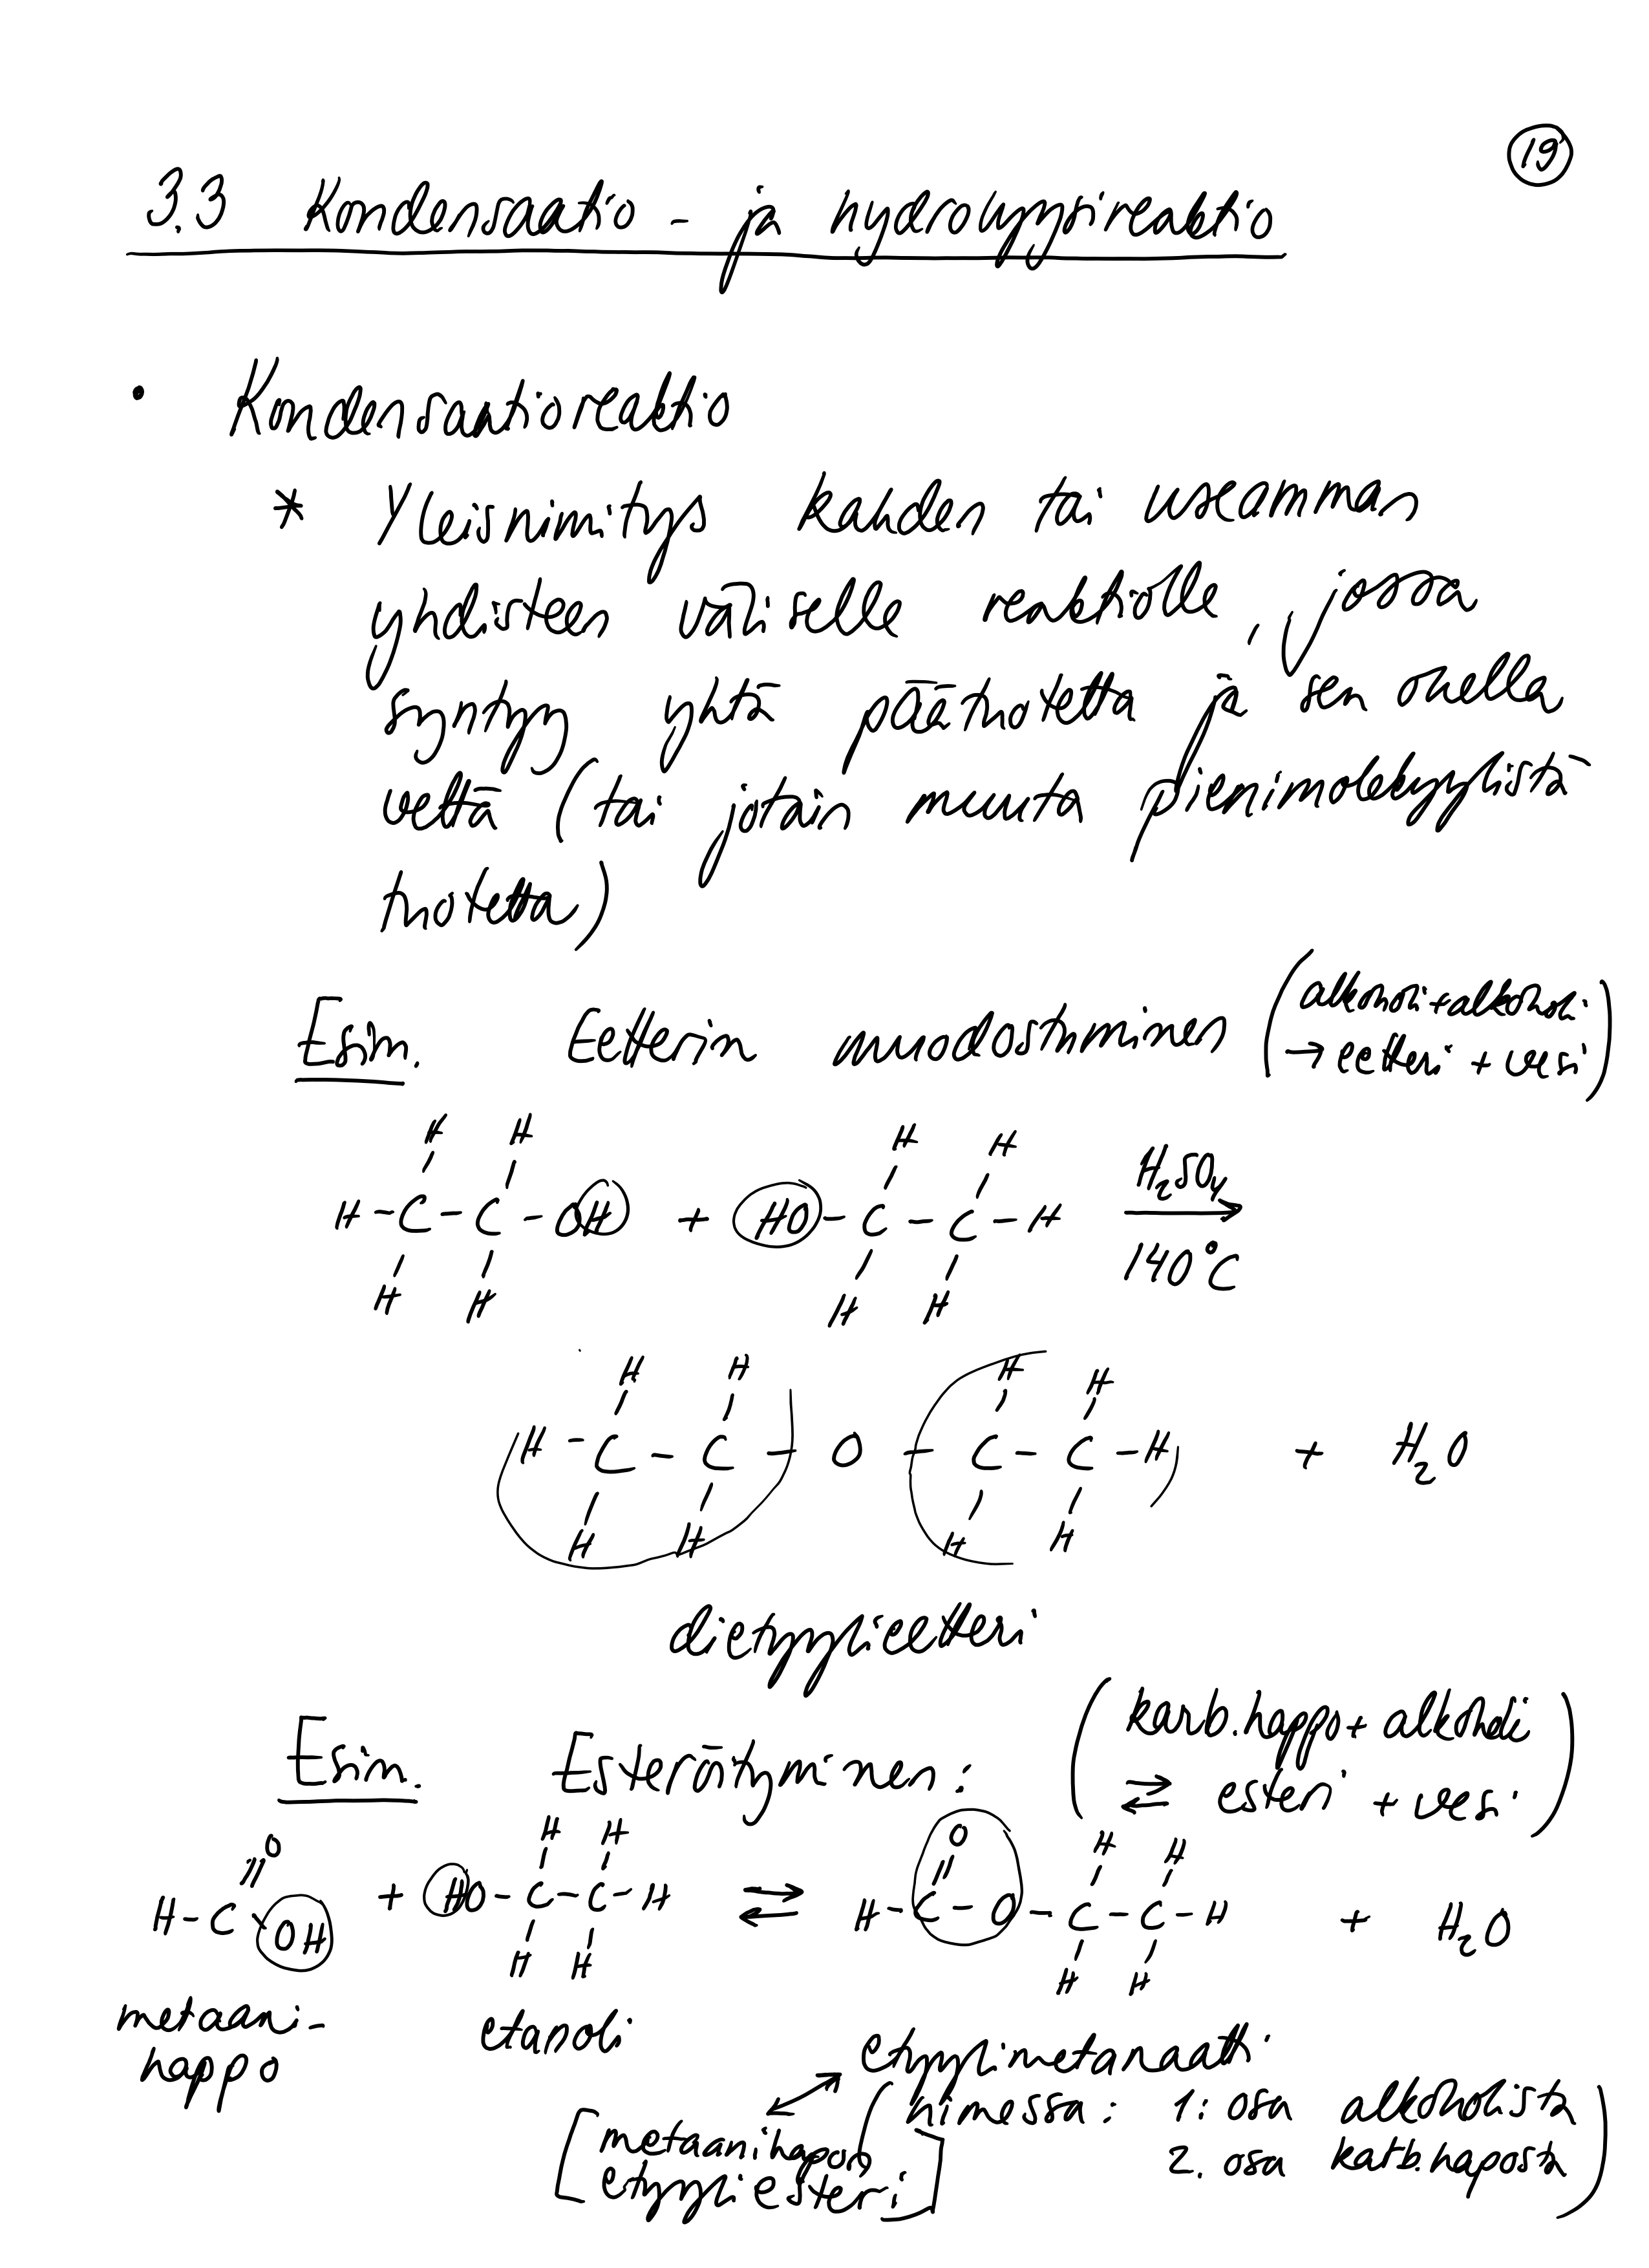 19
3.3 Kondensaatio - ja hydrolyysireaktio
• Kondensaatioreaktio
* Yleisnimitys kahden tai useamman
yhdisteen väliselle reaktiolle, jossa
syntyy yhtä päätuotetta ja sen ohella
vettä (tai jotain muuta pienimolekyylistä
tuotetta)
Esim. Eetterin muodostuminen (alkoholi + alkoholi
→ eetteri + vesi)
H H H H
H - C - C - OH + HO - C - C - H H₂SO₄
140°C
H H H H
H H H H
H - C - C - O - C - C - H + H₂O
H H H H
dietyylieetteri
Esim. Esteröityminen: (karb.happo + alkoholi
⇌ esteri + vesi)
O H H O H H
H - C - OH + HO - C - C - H ⇌ H - C - O - C - C - H + H₂O
H H H H
metaani-
happo
etanoli
etyylimetanaatti
(nimessä: 1: osa alkoholista
2. osa karb.haposta)
[metaanihapon
etyyliesteri]